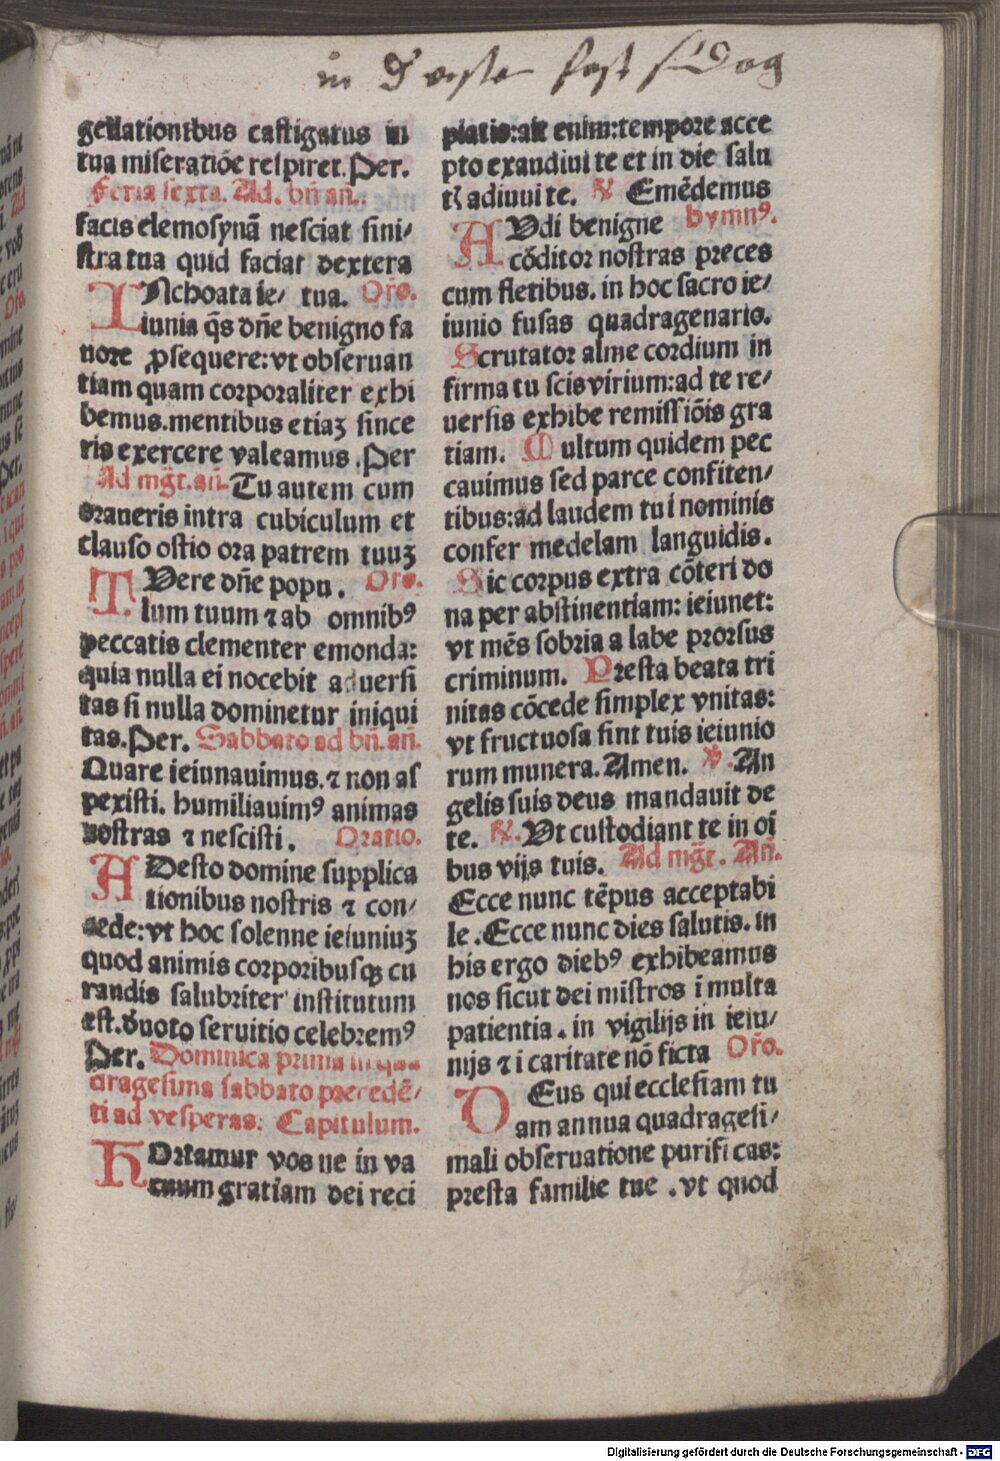 in d erste fast sūdag
gellationibus castigatus in
tua miseratiōe respiret. Per.
Feria sexta. Ad. bn̄ an̄.
facis elemosynā nesciat sini/
stra tua quid faciat dextera
INchoata ie/ tua. Or̄o.
iunia q̄s dn̄e benigno fa
uore ꝓsequere: vt obseruan
tiam quam corporaliter exhi
bemus. mentibus etiaꝫ since
ris exercere valeamus. Per
Ad mḡt. an̄. Tu autem cum
oraueris intra cubiculum et
clauso ostio ora patrem tuuꝫ
TVere dn̄e popu. Oro.
lum tuum ⁊ ab omnibꝰ
peccatis clementer emonda:
quia nulla ei nocebit aduersi
tas si nulla dominetur iniqui
tas. Per. Sabbato ad bn̄. an̄.
Quare ieiunauimus. ⁊ non as
pexisti. humiliauimꝰ animas
nostras ⁊ nescisti. Oratio.
ADesto domine supplica
tionibus nostris ⁊ con/
cede: vt hoc solenne ieiuniuꝫ
quod animis corporibusqꝫ cu
randis salubriter institutum
est. deuoto seruitio celebremꝰ
Per. Dominica prima in qua
dragesima sabbato precedē/
ti ad vesperas. Capitulum.
HOrtamur vos ne in va
cuum gratiam dei reci
piatis: ait enim: tempore acce
pto exaudiui te et in die salu
tꝭ adiuui te. ℟ Emēdemus
AVdi benigne hymnꝰ.
cōditor nostras preces
cum fletibus. in hoc sacro ie/
iunio fusas quadragenario.
Scrutator alme cordium in
firma tu scis virium: ad te re/
uersis exhibe remissiōis gra
tiam. Multum quidem pec
cauimus sed parce confiten/
tibus: ad laudem tui nominis
confer medelam languidis.
Sic corpus extra cōteri do
na per abstinentiam: ieiunet:
vt mēs sobria a labe prorsus
criminum. Presta beata tri
nitas cōcede simplex vnitas:
vt fructuosa sint tuis ieiunio
rum munera. Amen. ℣. An
gelis suis deus mandauit de
te. ℟. Vt custodiant te in oī
bus vijs tuis. Ad mḡt. An̄.
Ecce nunc tēpus acceptabi
le. Ecce nunc dies salutis. in
his ergo diebꝰ exhibeamus
nos sicut dei mīstros ī multa
patientia. in vigilijs in ieiu/
nijs ⁊ ī caritate nō ficta Or̄o.
DEus qui ecclesiam tu
am annua quadragesi/
mali obseruatione purificas:
presta familie tue. vt quod
Digitalisierung gefördert durch die Deutsche Forschungsgemeinschaft - DFG